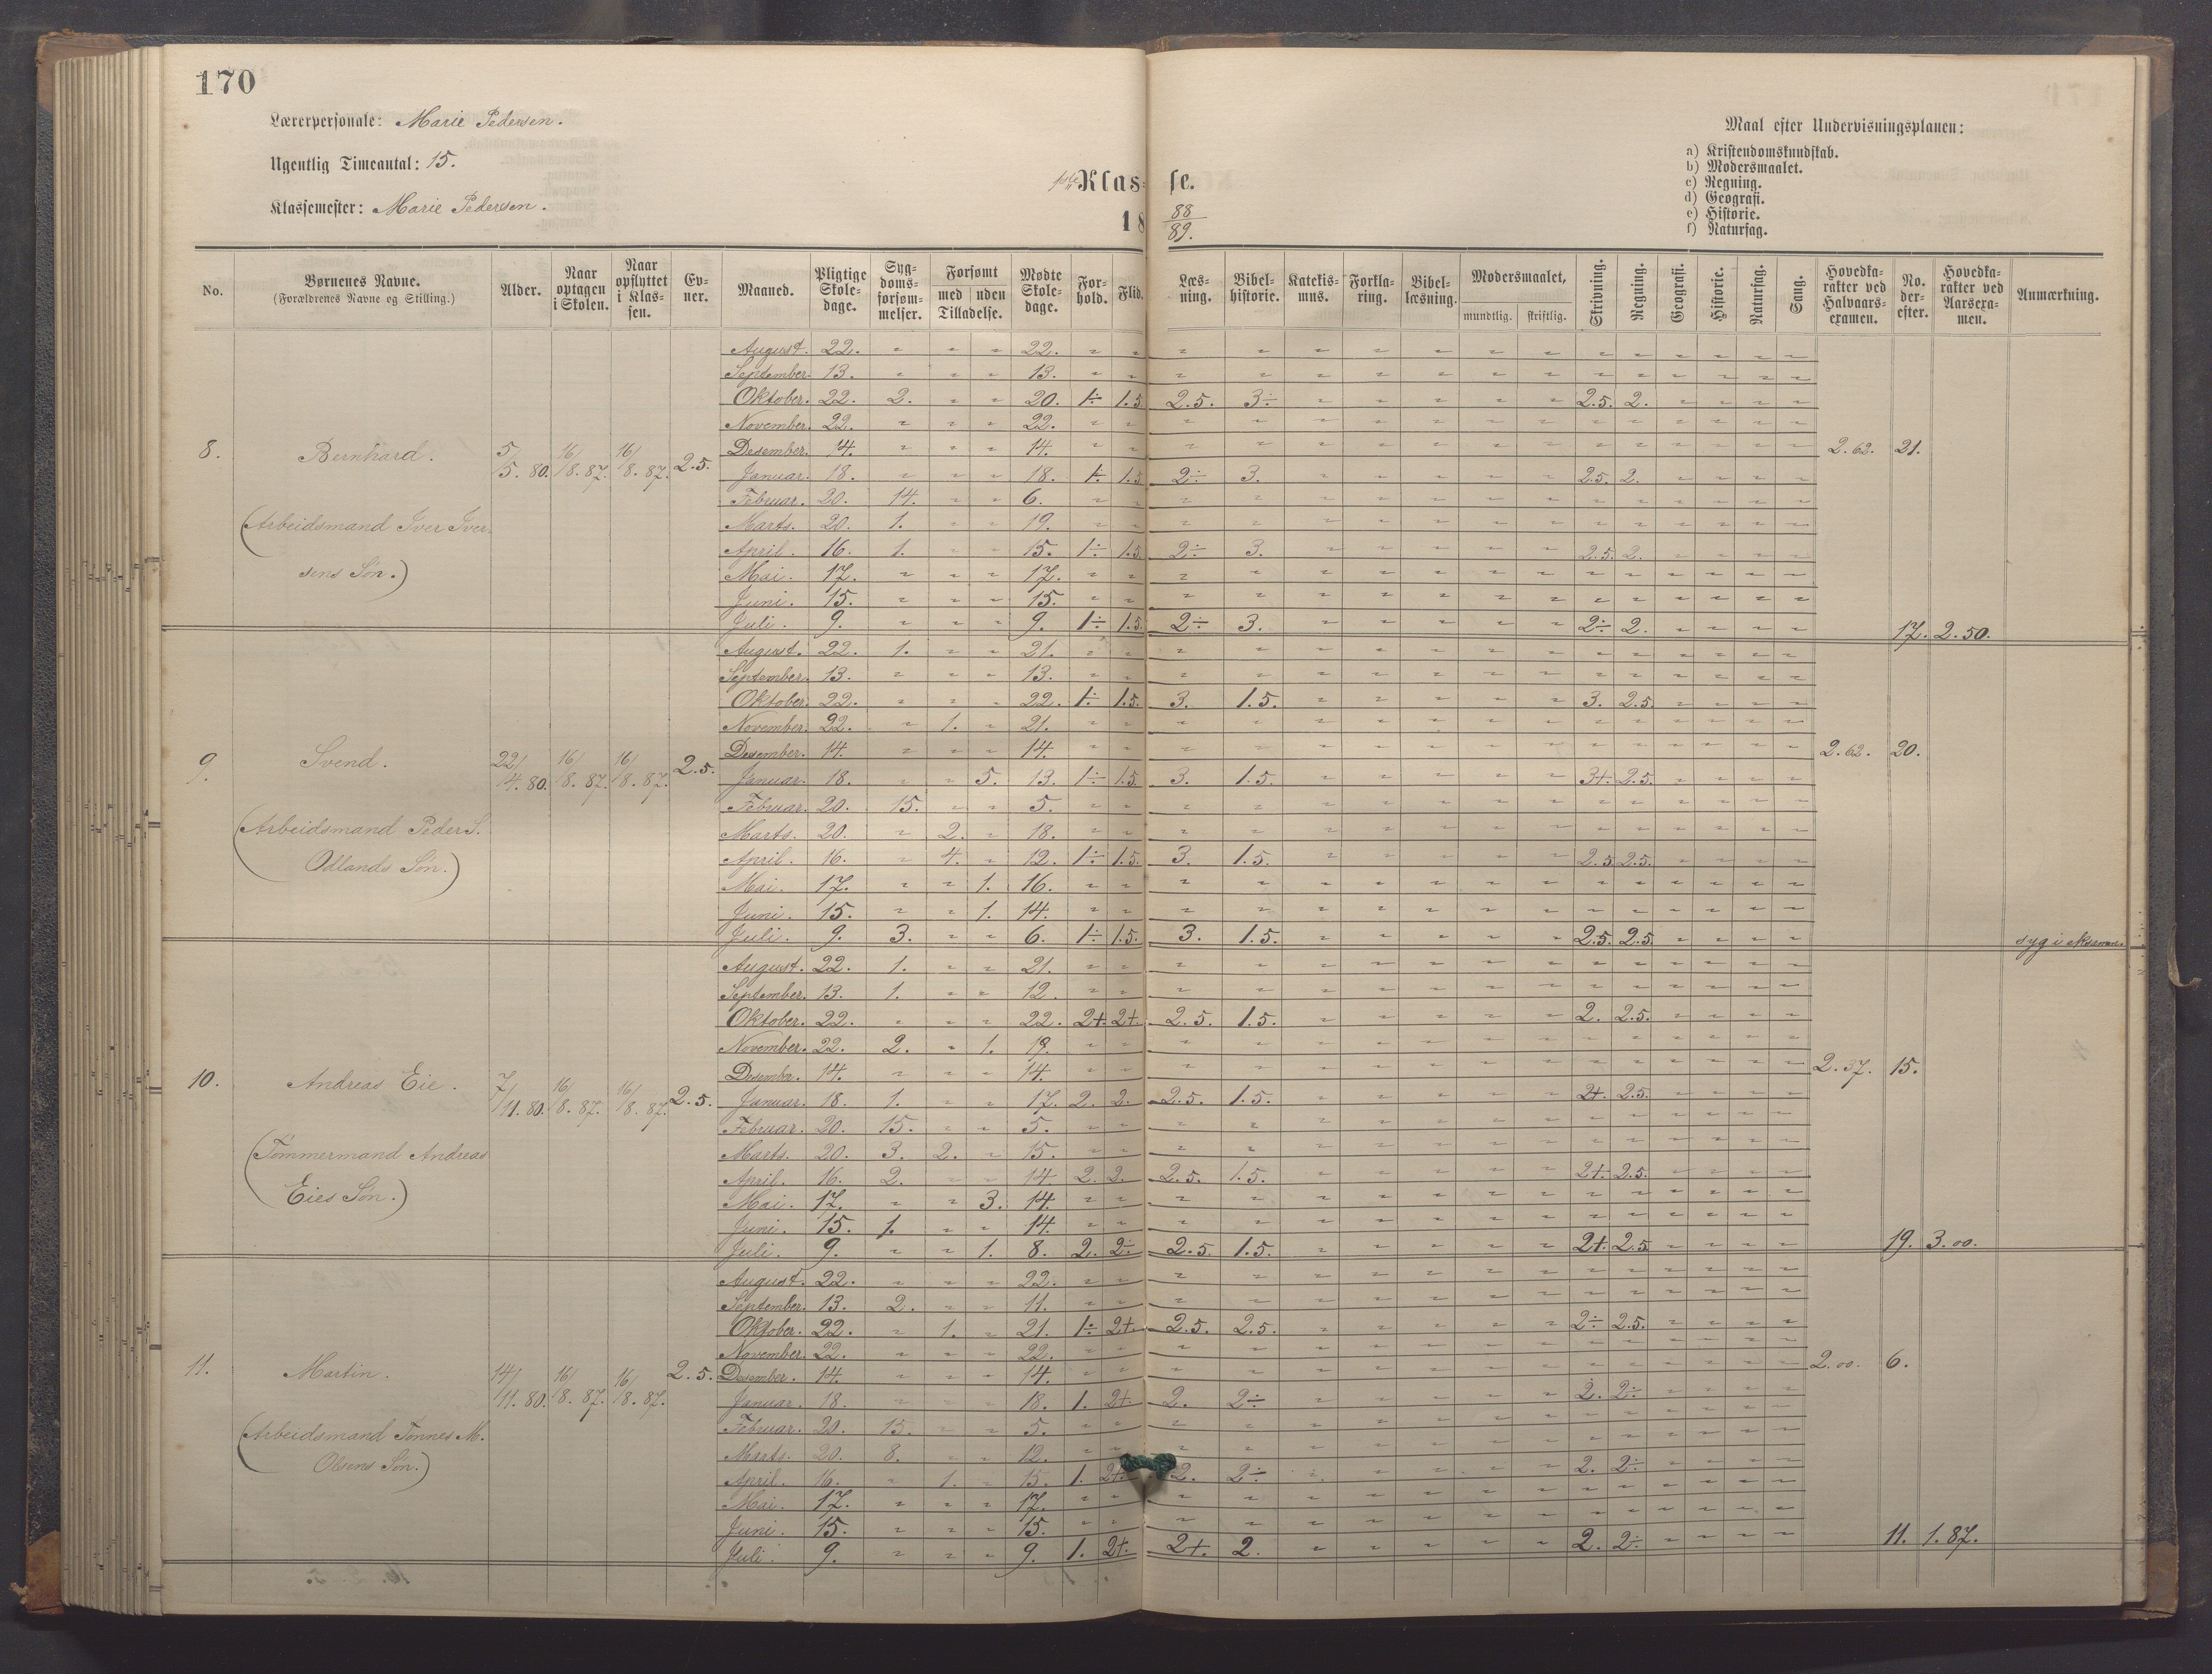 170
Lærerpersonale: Marie Pedersen.
Ugentlig Timeantal: 15.
Klassemester: Marie Pedersen.
1ste Klasse.
18 88/89.
Maal efter Undervisningsplanen:
a) Kristendomskundskab.
b) Modersmaalet.
c) Regning.
d) Geografi.
e) Historie.
f) Naturfag.
No. Børnenes Navne. (Forældrenes Navne og Stilling.) Alder. Naar optagen i Skolen. Naar opflyttet i Klassen. Evner. Maaned. Pligtige Skoledage. Sygdomsforsømmelser. Forsømt med uden Tilladelse. Mødte Skoledage. Forhold. Flid. Læsning. Bibelhistorie. Katekismus. Forklaring. Bibellæsning. Modersmaalet, mundtlig. skriftlig. Skrivning. Regning. Geografi. Historie. Naturfag. Sang. Hovedkarakter ved Halvaarsexamen. No. derefter. Hovedkarakter ved Aarsexamen. Anmærkning.
8. Bernhard. 5/5. 80. 16/8. 87. 16/8. 87. 2.5. 2.62. 21.
(Arbeidsmand Iver Iversens Søn.)
August. 22. " " " 22. " "
September. 13. " " " 13. " "
Oktober. 22. 2. " " 20. 1÷ 1.5. 2.5. 3÷ 2.5. 2.
November. 22. " " " 22. " "
Desember. 14. " " " 14. " "
Januar. 18. " " " 18. 1÷ 1.5. 2÷ 3. 2.5. 2.
Februar. 20. 14. " " 6. " "
Marts. 20. 1. " " 19. " "
April. 16. 1. " " 15. 1÷ 1.5. 2÷ 3. 2.5. 2.
Mai. 17. " " " 17. " "
Juni. 15. " " " 15. " "
Juli. 9. " " " 9. 1÷ 1.5. 2÷ 3. 2÷ 2. 17. 2.50.
9. Svend. 22/4. 80. 16/8. 87. 16/8. 87. 2.5. 2.62. 20.
(Arbeidsmand Peder S. Odlands Søn.)
August. 22. 1. " " 21. " "
September. 13. " " " 13. " "
Oktober. 22. " " " 22. 1÷ 1.5. 3. 1.5. 3. 2.5.
November. 22. " 1. " 21. " "
Desember. 14. " " " 14. " "
Januar. 18. " " 5. 13. 1÷ 1.5. 3. 1.5. 3+. 2.5.
Februar. 20. 15. " " 5. " "
Marts. 20. " 2. " 18. " "
April. 16. " 4. " 12. 1÷ 1.5. 3. 1.5. 2.5. 2.5.
Mai. 17. " " 1. 16. " "
Juni. 15. " " 1. 14. " "
Juli. 9. 3. " " 6. 1÷ 1.5. 3. 1.5. 2.5. 2.5. syg i eksamen.
10. Andreas Eie. 7/11. 80. 16/8. 87. 16/8. 87. 2.5. 2.37. 15.
(Tømmermand Andreas Eies Søn.)
August. 22. 1. " " 21. " "
September. 13. 1. " " 12. " "
Oktober. 22. " " " 22. 2+. 2+. 2.5. 1.5. 2. 2.5.
November. 22. 2. " 1. 19. " "
Desembr. 14. " " " 14. " "
Januar. 18. 1. " " 17. 2. 2. 2.5. 1.5. 2+. 2.5.
Februar. 20. 15. " " 5. " "
Marts. 20. 3. 2. " 15. " "
April. 16. 2. " " 14. 2. 2. 2.5. 1.5. 2+. 2.5.
Mai. 17. " " 3. 14. " "
Juni. 15. 1. " " 14. " "
Juli. 9. " " 1. 8. 2. 2÷ 2.5. 1.5. 2+. 2.5. 19. 3.00.
11. Martin. 14/11. 80. 16/8. 87. 16/8. 87. 2.5. 2.00. 6.
(Arbeidsmand Tønnes M. Olsens Søn.)
August. 22. " " " 22. " "
September. 13. 2. " " 11. " "
Oktober. 22. " 1. " 21. 1÷ 2+. 2.5. 2.5. 2÷ 2.5.
November. 22. " " " 22. " "
Desember. 14. " " " 14. " "
Januar. 18. " " " 18. 1. 2+. 2. 2÷ 2. 2÷
Februar. 20. 15. " " 5. " "
Marts. 20. 8. " " 12. " "
April. 16. " 1. " 15. 1. 2+. 2. 2÷ 2. 2÷
Mai. 17. " " " 17. " "
Juni. 15. " " " 15. " "
Juli. 9. " " " 9. 1. 2+. 2+. 2. 2. 2÷ 11. 1.87.